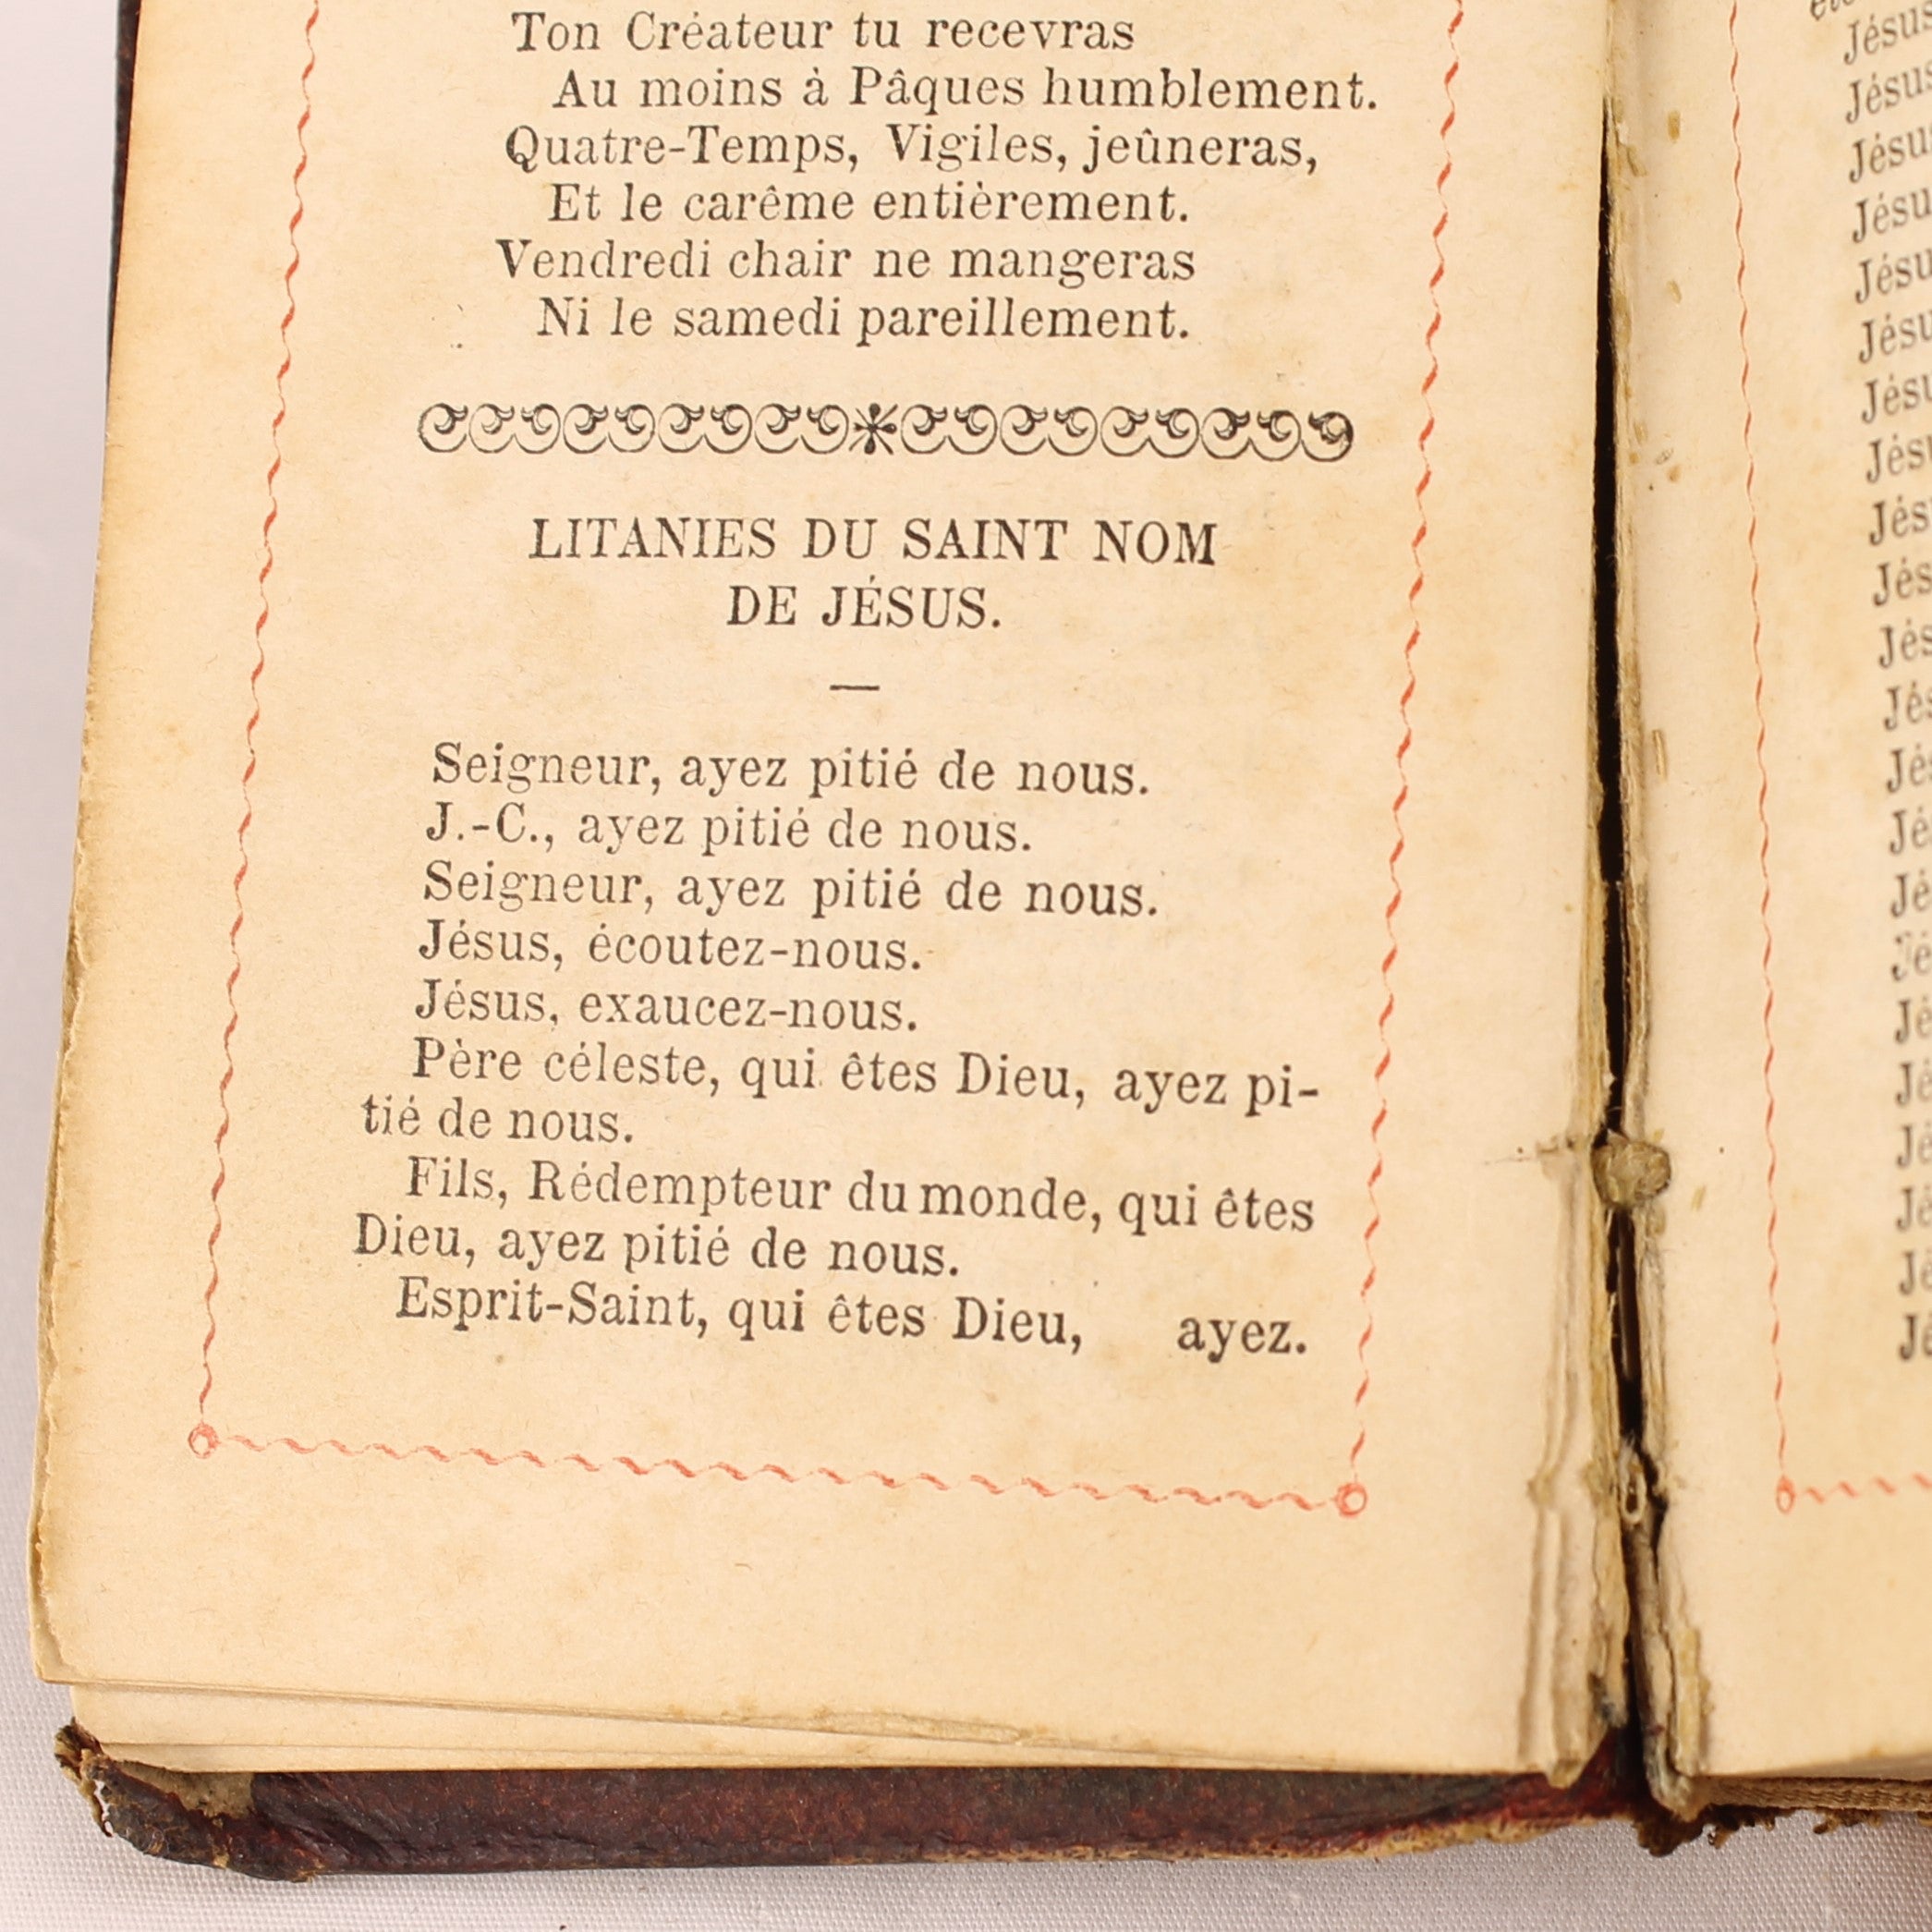 Ton Créateur tu recevras
Au moins à Pâques humblement.
Quatre-Temps, Vigiles, jeûneras,
Et le carême entièrement.
Vendredi chair ne mangeras
Ni le samedi pareillement.
LITANIES DU SAINT NOM
DE JÉSUS.
—
Seigneur, ayez pitié de nous.
J.-C., ayez pitié de nous.
Seigneur, ayez pitié de nous.
Jésus, écoutez-nous.
Jésus, exaucez-nous.
Père céleste, qui êtes Dieu, ayez pi-
tié de nous.
Fils, Rédempteur du monde, qui êtes
Dieu, ayez pitié de nous.
Esprit-Saint, qui êtes Dieu, ayez.
Jésus
Jésus